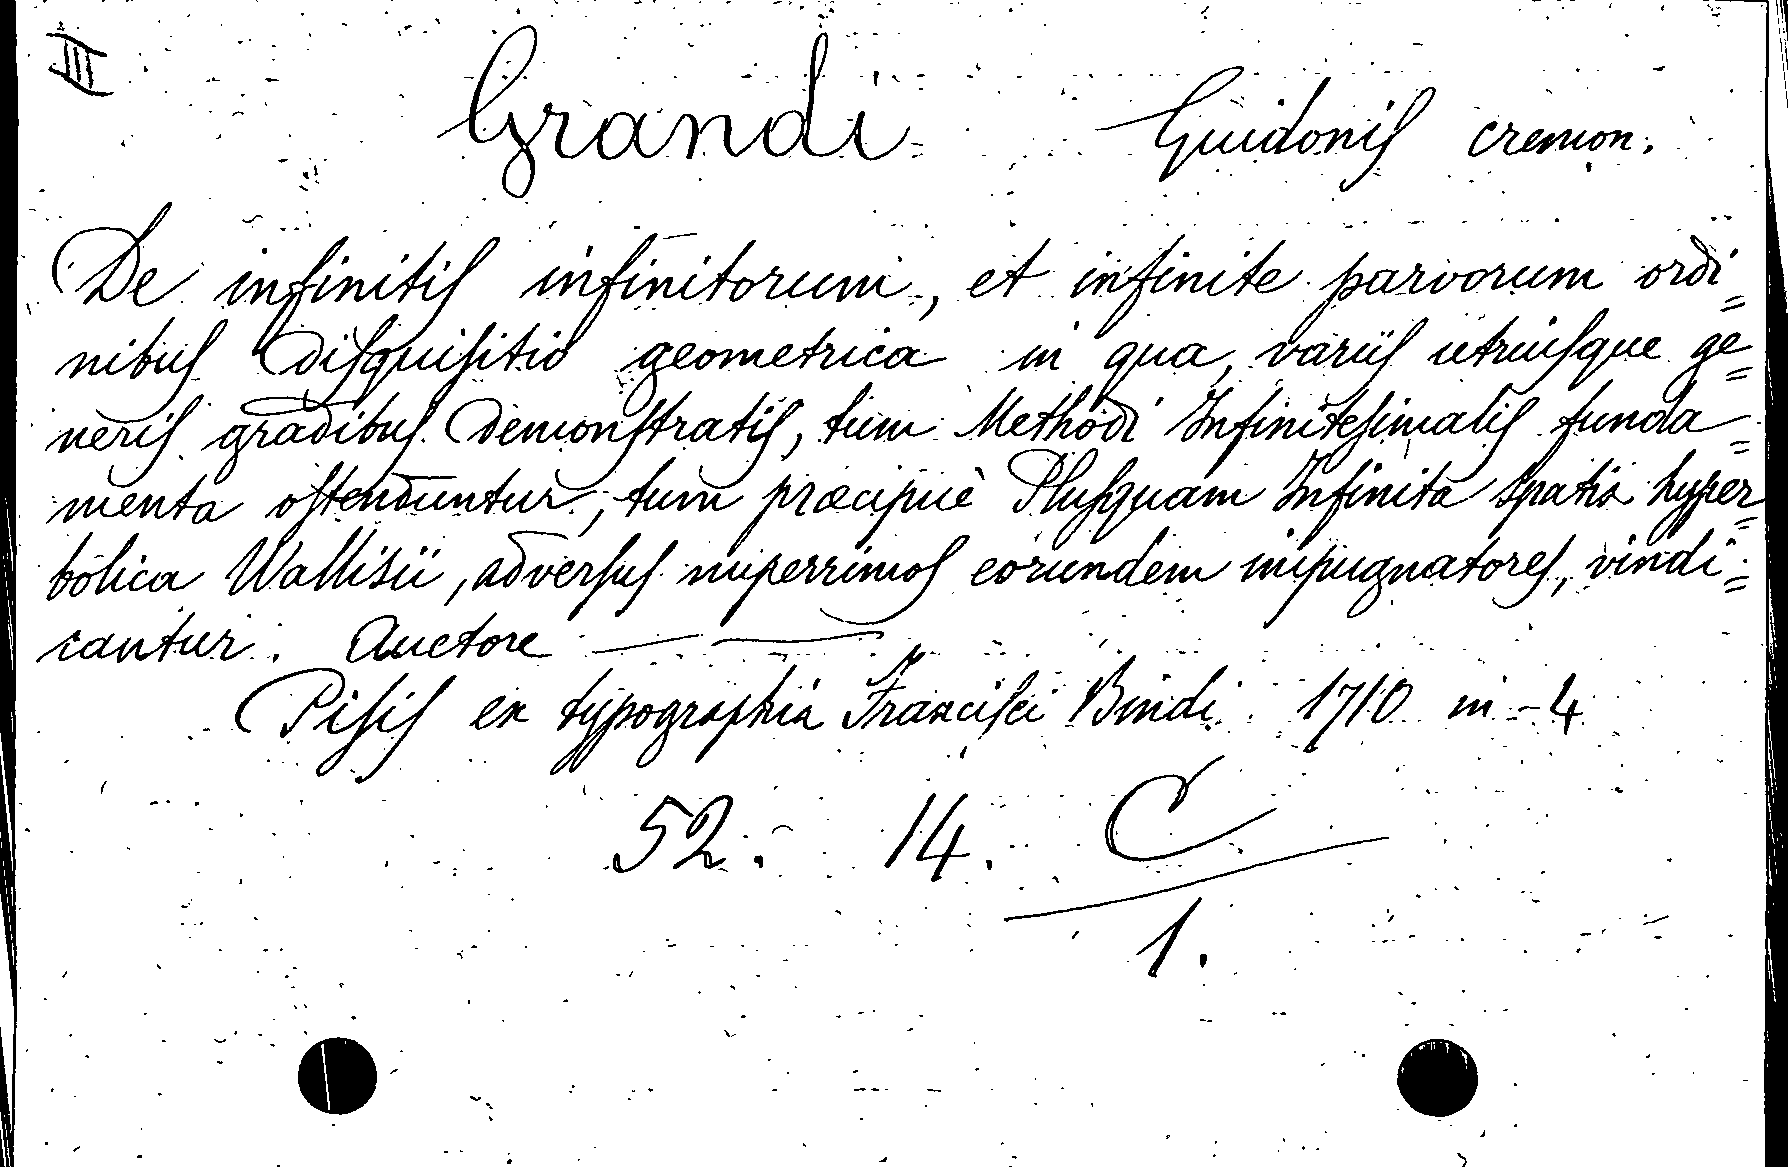 III
Grandi Guidonis cremon.
De infinitis infinitorum, et infinite parvorum ordi=
nibus Disquisitio geometrica in qua, variis utriusque ge=
neris gradibus Demonstratis, tum Methodi Infinitesimalis funda=
menta ostenduntur, tum præcipuè Plusquam Infinita spatia hyper=
bolica Wallisii, adversus nuperrimos eorundem impugnatores, vindi=
cantur. Auctore — —
Pisis ex typographia Francisci Bindi 1710 in-4
52. 14. C
1.